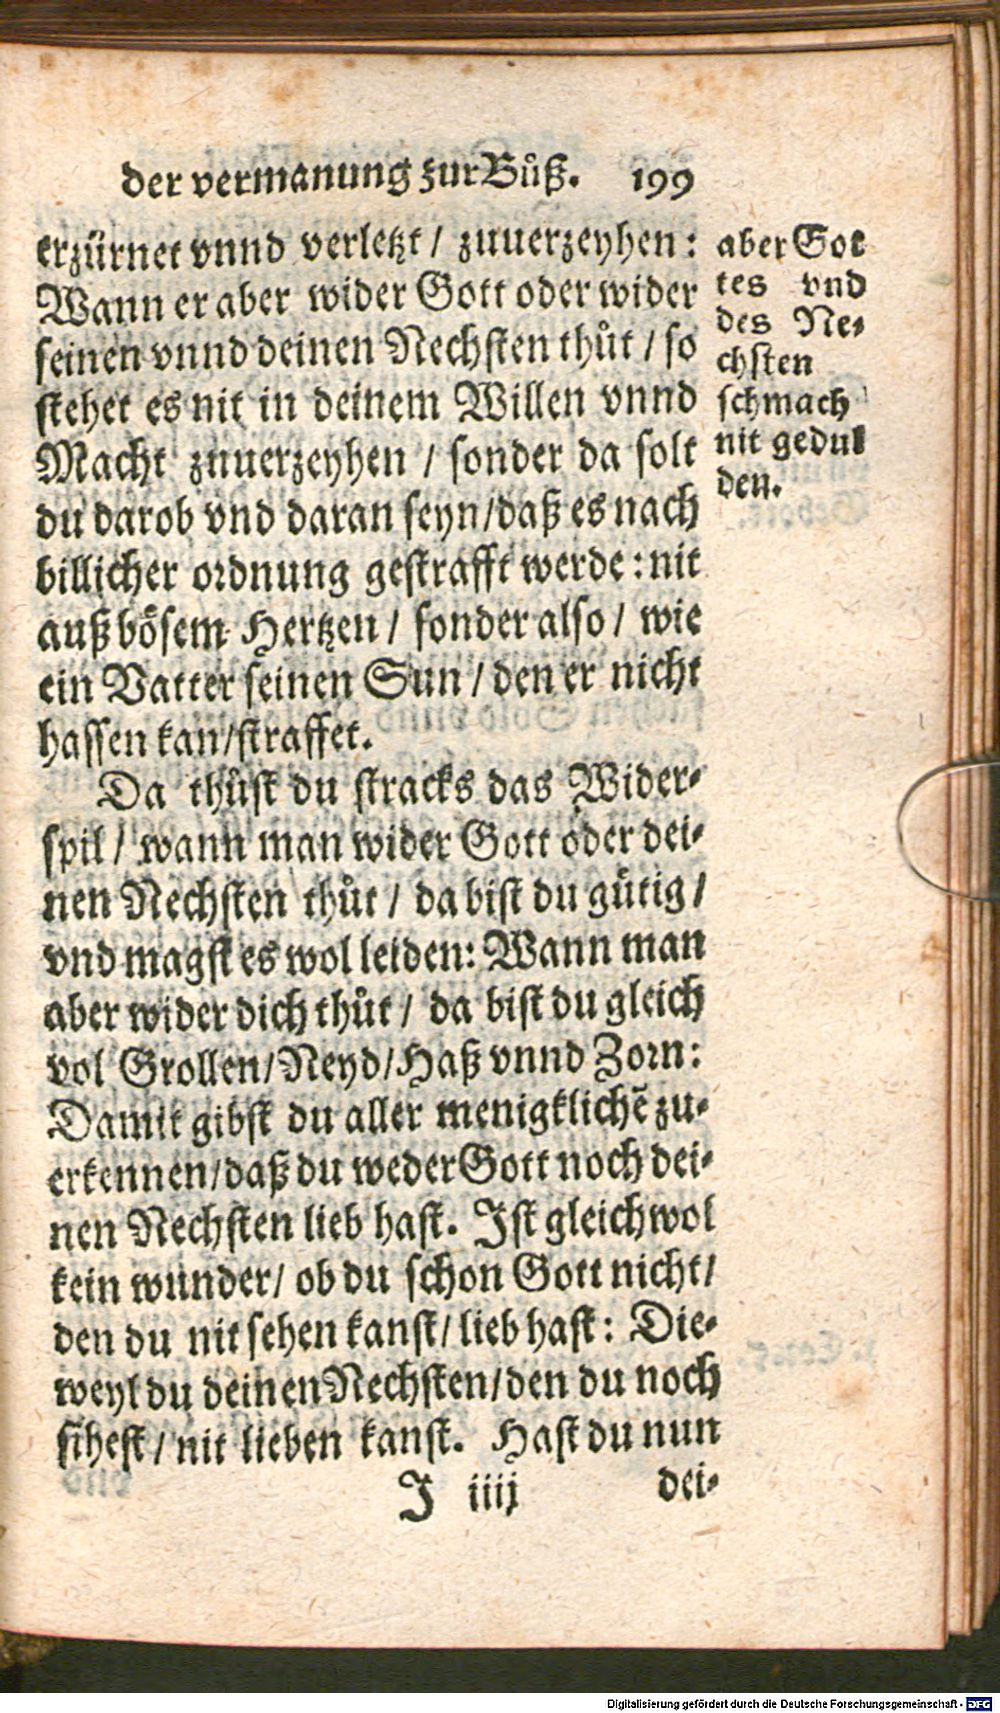 der vermanung zur Buͦß. 199
erzürnet vnnd verletzt / zuuerzeyhen:
Wann er aber wider Gott oder wider
seinen vnnd deinen Nechsten thuͦt / so
stehet es nit in deinem Willen vnnd
Macht zuuerzeyhen / sonder da solt
du darob vnd daran seyn/daß es nach
billicher ordnung gestrafft werde: nit
auß bösem Hertzen / sonder also / wie
ein Vatter seinen Sun / den er nicht
hassen kan/straffet.
Da thuͦst du stracks das Wider-
spil / wann man wider Gott oder dei-
nen Nechsten thuͦt / da bist du gütig /
vnd magst es wol leiden: Wann man
aber wider dich thuͦt / da bist du gleich
vol Grollen/Neyd/Haß vnnd Zorn:
Damit gibst du aller menigklichẽ zu-
erkennen/daß du weder Gott noch dei-
nen Nechsten lieb hast. Ist gleichwol
kein wunder/ ob du schon Gott nicht/
den du nit sehen kanst/ lieb hast: Die-
weyl du deinen Nechsten/den du noch
sihest / nit lieben kanst. Hast du nun
J iiij dei-
aber Got
tes vnd
des Ne-
chsten
schmach
nit gedul
den.
Digitalisierung gefördert durch die Deutsche Forschungsgemeinschaft - DFG